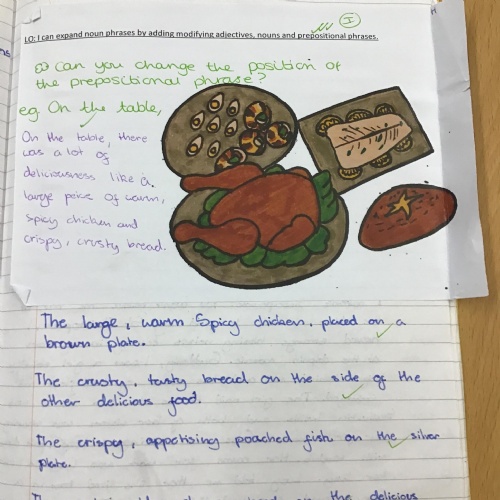 I
LO: I can expand noun phrases by adding modifying adjectives, nouns and prepositional phrases.
Can you change the position of
the prepositional phrase?
eg. On the table,
On the table, there
was a lot of
deliciousness like a
large peice of warm,
spicy chicken and
crispy, crusty bread.
The large, warm Spicy chicken, placed on a
brown plate.
The crusty, tasty bread on the side of the
other delicious food.
The crispy, appetising poached fish on the silver
plate.
the delicious